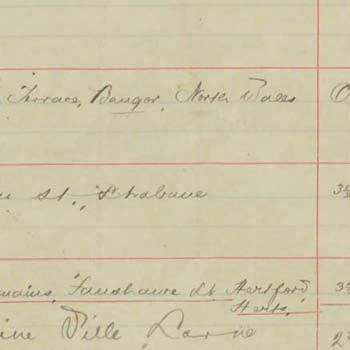 Terrace, Bangor, North Wales
St., Strabane
Fanshawe St. Hertford,
Herts.
Ville, Larne